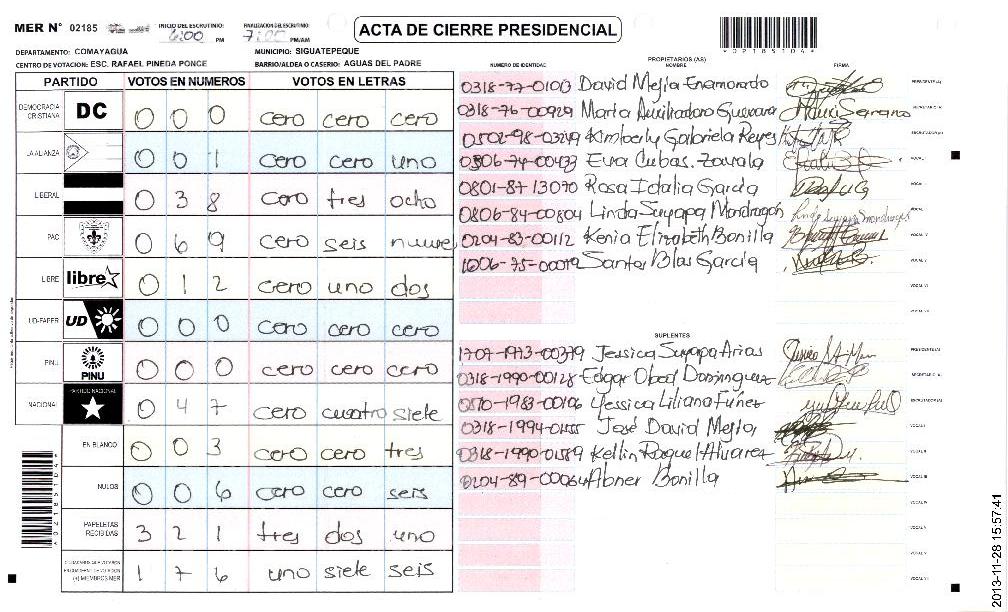 MER N° 02185 INICIO DEL ESCRUTINIO: 6:00 PM FINALIZACIÓN DEL ESCRUTINIO: PM/AM
ACTA DE CIERRE PRESIDENCIAL
DEPARTAMENTO: COMAYAGUA MUNICIPIO: SIGUATEPEQUE
CENTRO DE VOTACION: ESC. RAFAEL PINEDA PONCE BARRIO/ALDEA O CASERIO: AGUAS DEL PADRE
PARTIDO VOTOS EN NUMEROS VOTOS EN LETRAS
DEMOCRACIA CRISTIANA DC 0 0 0 cero cero cero
LA ALIANZA 0 0 1 cero cero uno
LIBERAL 0 3 8 cero tres ocho
PAC 0 6 9 cero seis nueve
LIBRE libre 0 1 2 cero uno dos
UD-FAPER UD 0 0 0 cero cero cero
PINU PINU 0 0 0 cero cero cero
NACIONAL PARTIDO NACIONAL 0 4 7 cero cuatro siete
EN BLANCO 0 0 3 cero cero tres
NULOS 0 0 6 cero cero seis
PAPELETAS RECIBIDAS 3 2 1 tres dos uno
(+) MIEMBROS MER 1 7 6 uno siete seis
PROPIETARIOS (AS)
NUMERO DE IDENTIDAD NOMBRE FIRMA
0318-77-01003 David Mejia Enamorado PRESIDENTE(A)
0318-76-00929 Marta Auxiliadora Guevara SECRETARIO(A)
0502-98-03249 Kimberly Gabriela Reyes ESCRUTADOR(A)
0306-74-00433 Eva Cubas Zavala VOCAL I
0801-87-13070 Rosa Idalia García VOCAL II
0806-84-00804 Linda Suyapa Mondragón VOCAL III
0204-83-00112 Kenia Elizabeth Bonilla VOCAL IV
1006-75-00079 Santos Blas García VOCAL V
VOCAL VI
VOCAL VII
SUPLENTES
1707-1973-00379 Jessica Suyapa Arias PRESIDENTE(A)
0318-1990-00128 Edgar Obed Dominguez SECRETARIO(A)
0510-1983-00106 Yessica Liliana Funez ESCRUTADOR(A)
0318-1994-01455 José David Mejía VOCAL I
0318-1990-01589 Kellin Raquel Alvarez VOCAL II
0204-89-00064 Abner Bonilla VOCAL III
VOCAL IV
VOCAL V
VOCAL VI
VOCAL VII
2013-11-28 15:57:41